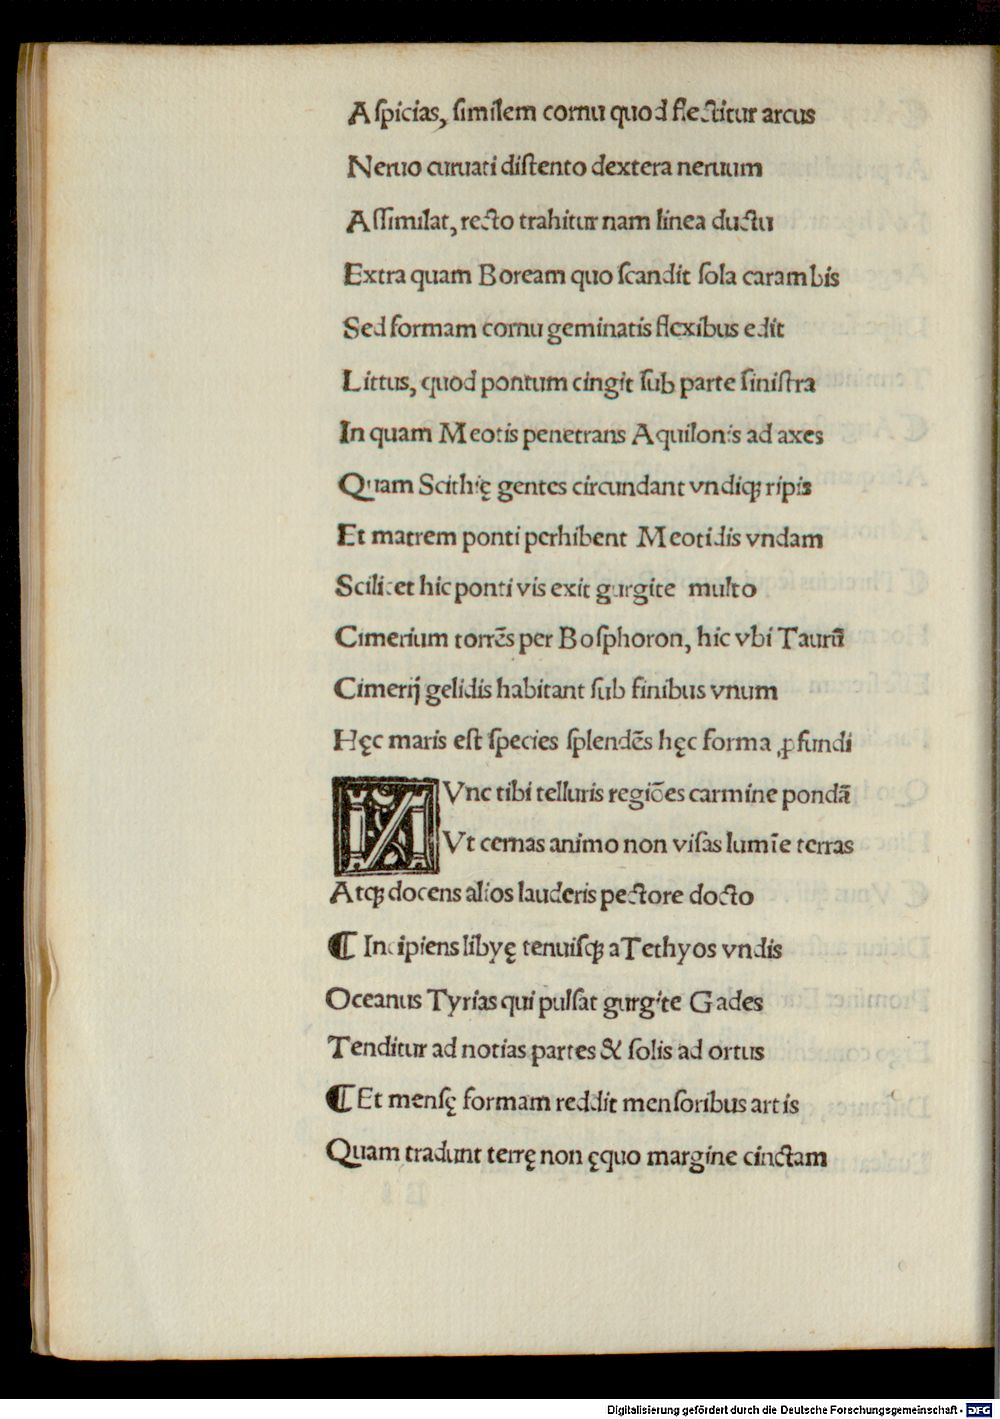 Aſpicias, ſimilem cornu quod flectitur arcus
Neruo curuati diſtento dextera neruum
Aſſimilat, recto trahitur nam linea ductu
Extra quam Boream quo ſcandit ſola carambis
Sed formam cornu geminatis flexibus edit
Littus, quod pontum cingit ſub parte ſiniſtra
In quam Meotis penetrans Aquilonis ad axes
Quam Scithię gentes circundant vndiqꝫ ripis
Et matrem ponti perhibent Meotidis vndam
Scilicet hic ponti vis exit gurgite multo
Cimerium torrēs per Boſphoron, hic vbi Taurū
Cimerij gelidis habitant ſub finibus vnum
Hęc maris eſt ſpecies ſplendēs hęc forma ꝓfundi
NVnc tibi telluris regiōes carmine pondā
Vt cernas animo non viſas lumīe terras
Atqꝫ docens alios lauderis pectore docto
¶ Incipiens libyę tenuiſqꝫ a Tethyos vndis
Oceanus Tyrias qui pulſat gurgite Gades
Tenditur ad notias partes & ſolis ad ortus
¶ Et menſę formam reddit menſoribus artis
Quam tradunt terrę non ęquo margine cinctam
Digitalisierung gefördert durch die Deutsche Forschungsgemeinschaft - DFG